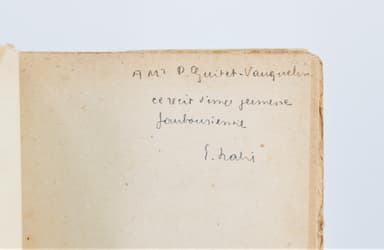 A Mr P. Guitet-Vauquelin
ce récit d'une jeunesse
faubourienne
E. Dabit